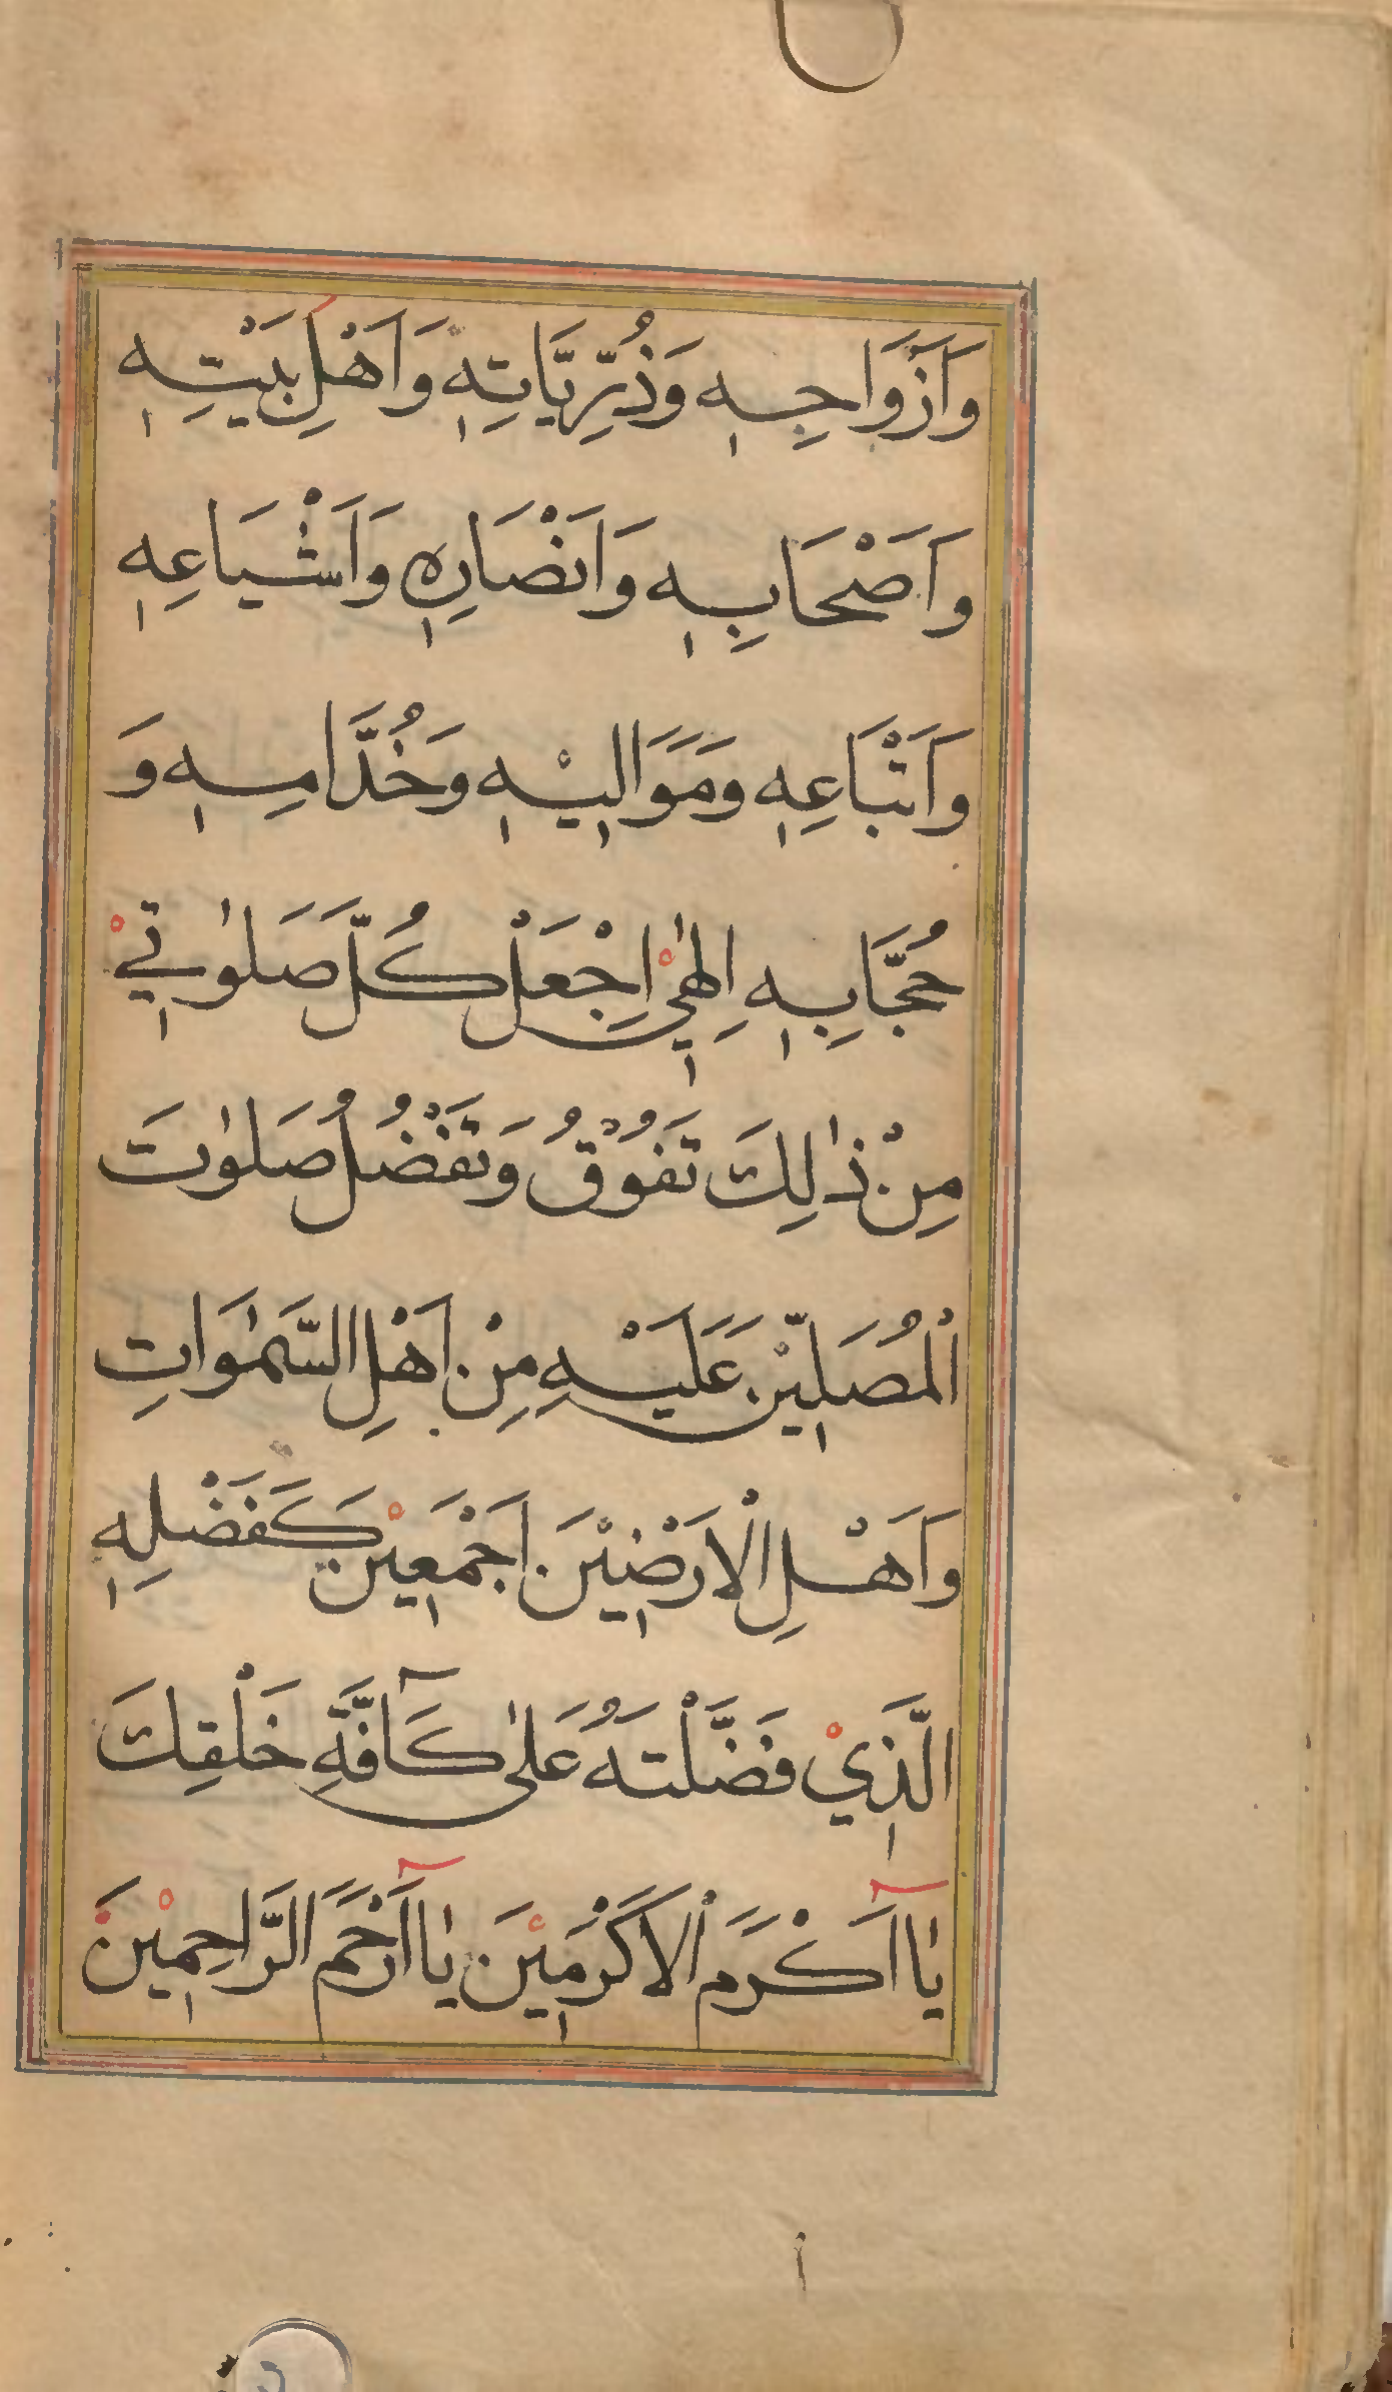 وَاَزْوَاجِهٖ وَذُرِّيَّاتِهٖ وَاَهْلِ بَيْتِهٖ
وَاَصْحَابِهٖ وَاَنْصَارِهٖ وَاَشْيَاعِهٖ
وَاَتْبَاعِهٖ وَمَوَالِيْهٖ وَخُدَّامِهٖ وَ
حُجَّابِهٖ اِلٰهِيْ اِجْعَلْ كُلَّ صَلٰوتِيْ
مِنْ ذٰلِكَ تَفُوْقُ وَتَفْضُلُ صَلٰوتَ
اْلمُصَلِّيْنَ عَلَيْهِ مِنْ اَهْلِ السَّمٰوَاتِ
وَاَهْلِ اْلاَرَضِيْنَ اَجْمَعِيْنَ كَفَضْلِهٖ
الَّذِيْ فَضَّلْتَهُ عَلٰى كَآفَّةِ خَلْقِكَ
يٰا اَكْرَمَ اْلاَكْرَمِيْنَ يٰا اَرْحَمَ الرَّاحِمِيْنَ